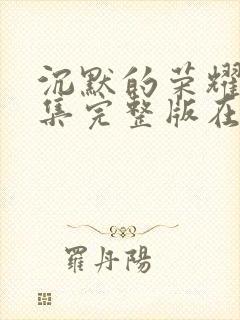 沉默的荣耀
集完整版在
羅丹陽